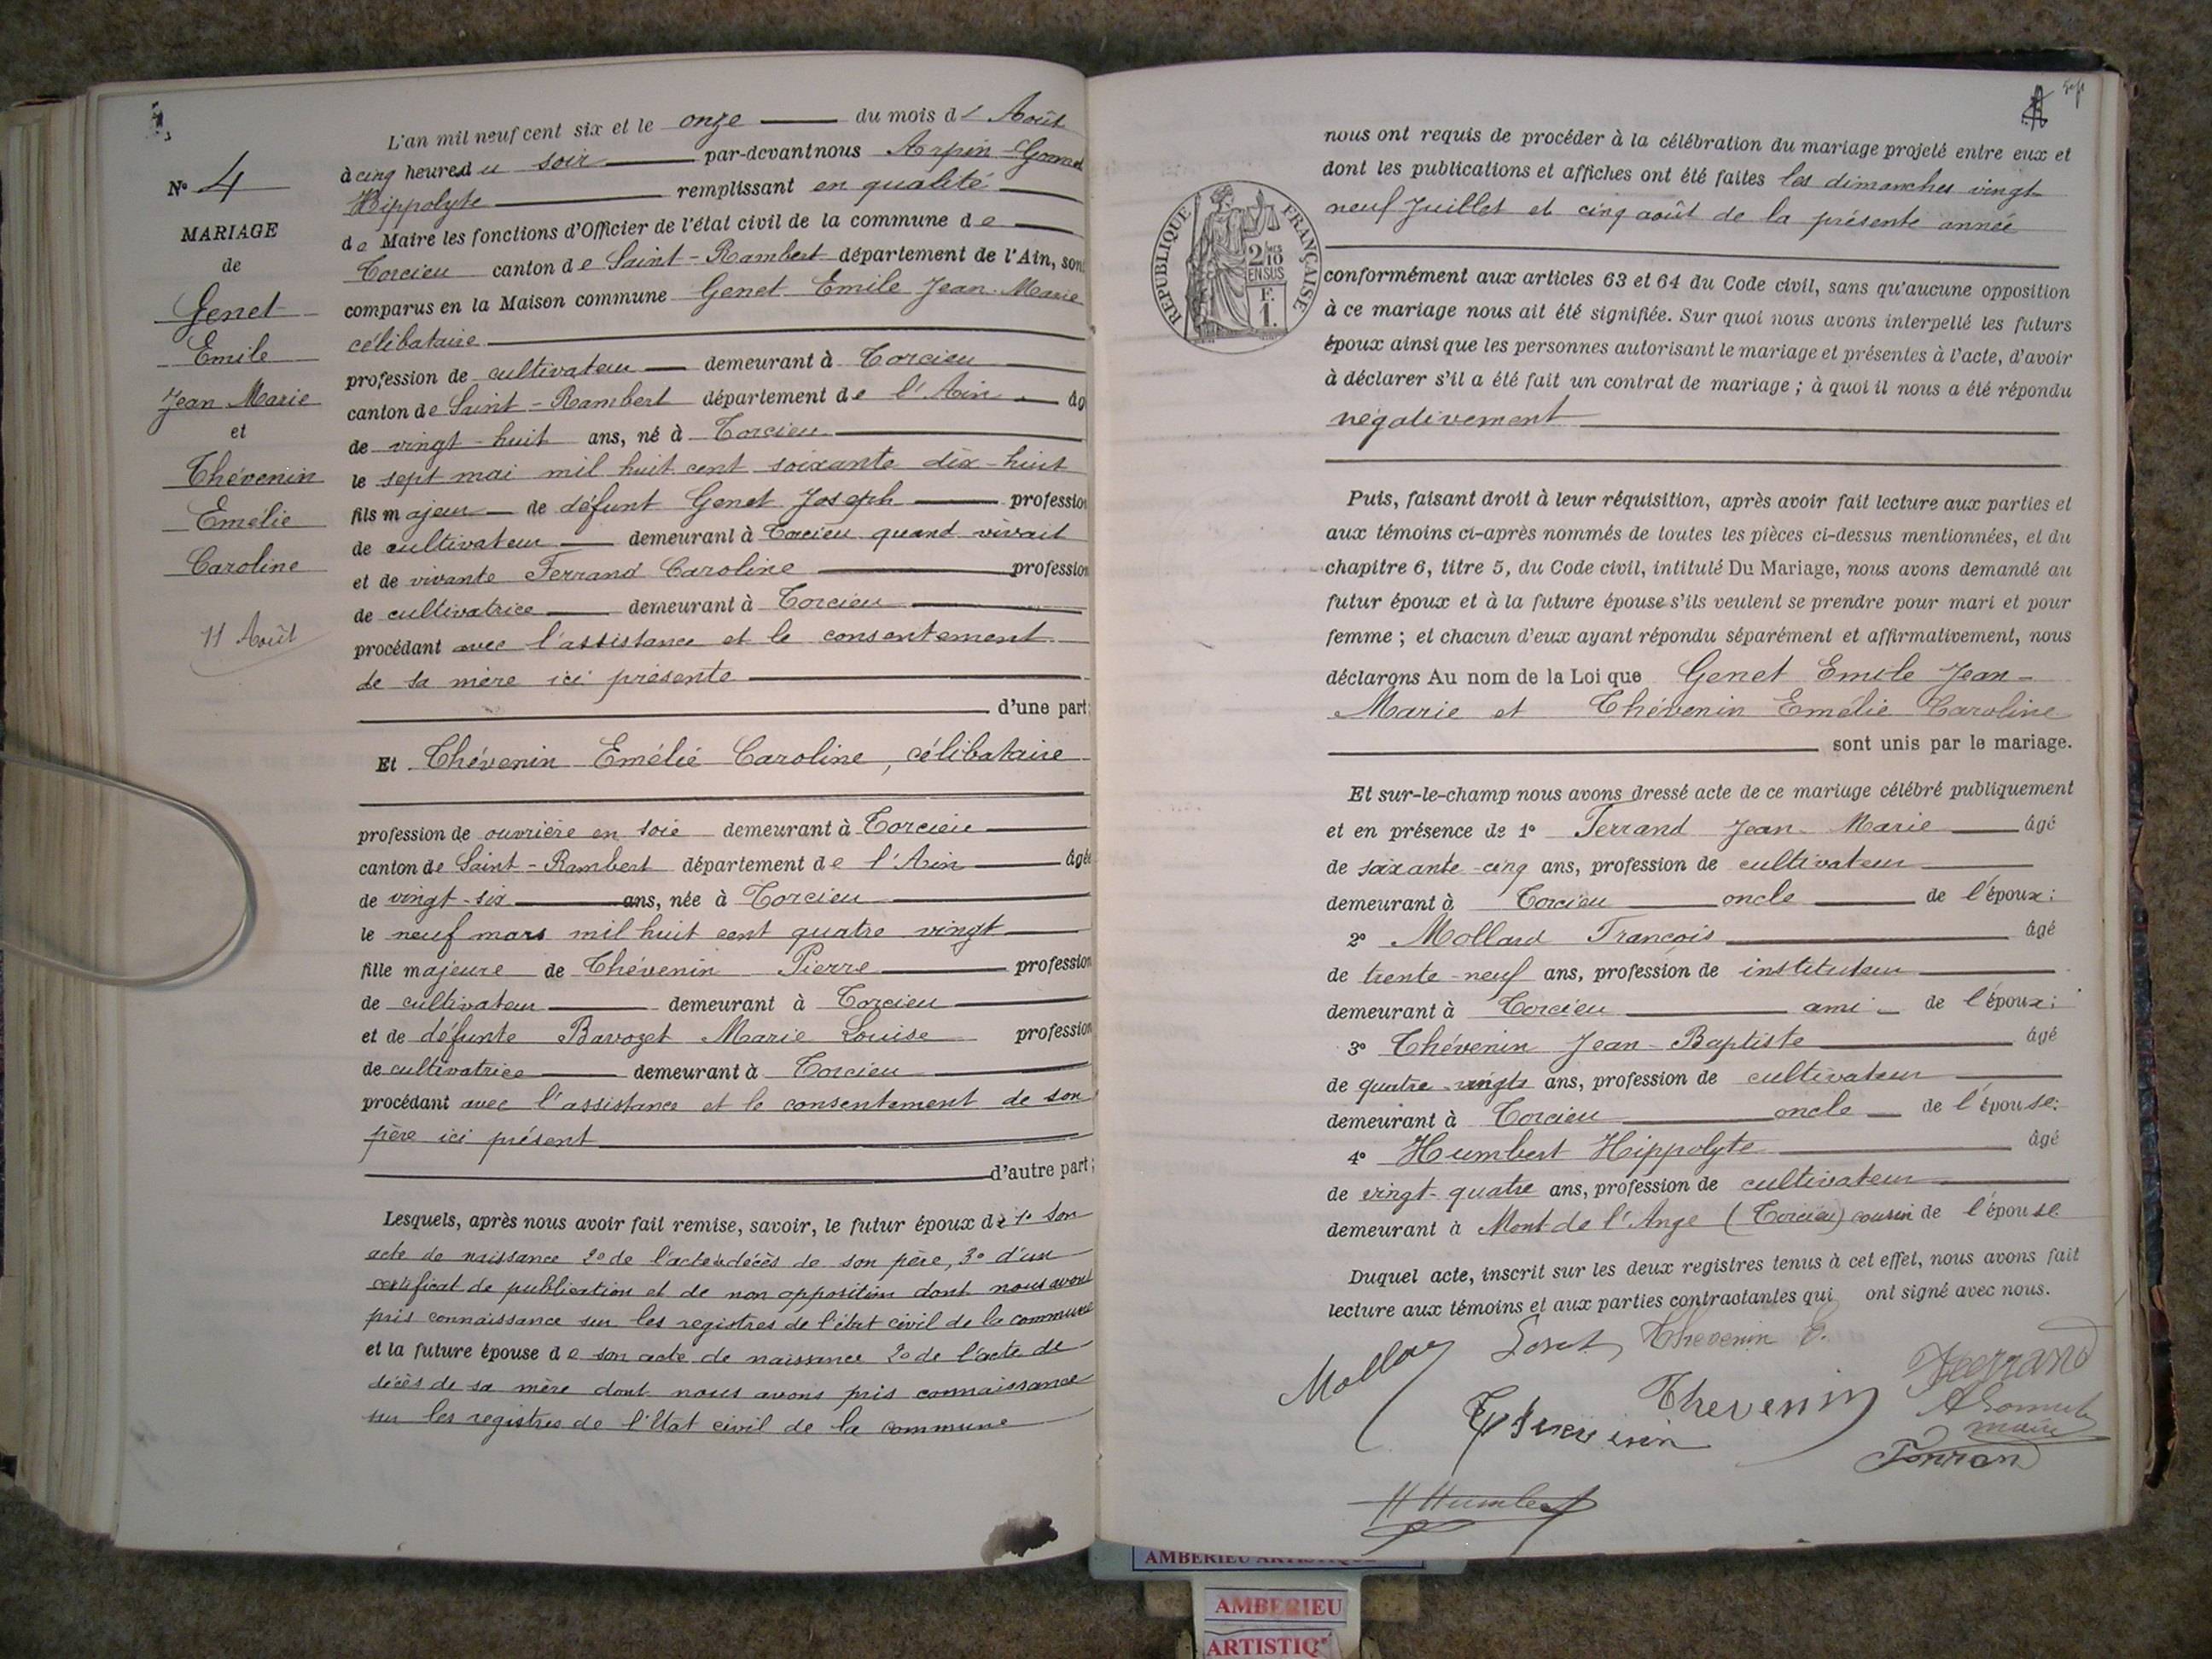 N° 4
MARIAGE
de
Genet
Emile
Jean Marie
et
Thévenin
Emélie
Caroline
11 Août
L'an mil neuf cent six et le onze du mois d Août
à cinq heures du soir par-devant nous Arpin
Hippolyte remplissant en qualité
de Maire les fonctions d'Officier de l'état civil de la commune de
Torcieu canton de Saint-Rambert département de l'Ain, son
comparus en la Maison commune Genet Emile Jean-Marie
célibataire
profession de cultivateur demeurant à Torcieu
canton de Saint-Rambert département de l'Ain âg
de vingt-huit ans, né à Torcieu
le sept mai mil huit cent soixante dix-huit
fils majeur de défunt Genet Joseph profession
de cultivateur demeurant à Torcieu quand vivait
et de vivante Ferrand Caroline profession
de cultivatrice demeurant à Torcieu
procédant avec l'assistance et le consentement
de sa mère ici présente
d'une part;
Et Thévenin Emélie Caroline, célibataire
profession de ouvrière en soie demeurant à Torcieu
canton de Saint-Rambert département de l'Ain âgée
de vingt-six ans, née à Torcieu
le neuf mars mil huit cent quatre vingt
fille majeure de Thévenin Pierre profession
de cultivateur demeurant à Torcieu
et de défunte Bavozet Marie Louise profession
de cultivatrice demeurant à Torcieu
procédant avec l'assistance et le consentement de son
père ici présent
d'autre part;
Lesquels, après nous avoir fait remise, savoir, le futur époux de 1° son
acte de naissance 2° de l'acte de décès de son père, 3° d'un
certificat de publication et de non opposition dont nous avons
pris connaissance sur les registres de l'état civil de la commune
et la future épouse de son acte de naissance 2° de l'acte de
décès de sa mère dont nous avons pris connaissance
sur les registres de l'Etat civil de la commune
RÉPUBLIQUE FRANÇAISE
2/10
EN SUS
F.
1.
nous ont requis de procéder à la célébration du mariage projeté entre eux et
dont les publications et affiches ont été faites les dimanches vingt
neuf Juillet et cinq août de la présente année
conformément aux articles 63 et 64 du Code civil, sans qu'aucune opposition
à ce mariage nous ait été signifiée. Sur quoi nous avons interpellé les futurs
époux ainsi que les personnes autorisant le mariage et présentes à l'acte, d'avoir
à déclarer s'il a été fait un contrat de mariage ; à quoi il nous a été répondu
négativement
Puis, faisant droit à leur réquisition, après avoir fait lecture aux parties et
aux témoins ci-après nommés de toutes les pièces ci-dessus mentionnées, et du
chapitre 6, titre 5, du Code civil, intitulé Du Mariage, nous avons demandé au
futur époux et à la future épouse s'ils veulent se prendre pour mari et pour
femme ; et chacun d'eux ayant répondu séparément et affirmativement, nous
déclarons Au nom de la Loi que Genet Emile Jean-
Marie et Thévenin Emélie Caroline
sont unis par le mariage.
Et sur-le-champ nous avons dressé acte de ce mariage célébré publiquement
et en présence de 1° Ferrand Jean-Marie âgé
de soixante-cinq ans, profession de cultivateur
demeurant à Torcieu oncle de l'époux:
2° Mollard François âgé
de trente-neuf ans, profession de instituteur
demeurant à Torcieu ami de l'époux:
3° Thévenin Jean-Baptiste âgé
de quatre-vingts ans, profession de cultivateur
demeurant à Torcieu oncle de l'épouse:
4° Humbert Hippolyte âgé
de vingt-quatre ans, profession de cultivateur
demeurant à Mont de l'Ange (Torcieu) cousin de l'épouse
Duquel acte, inscrit sur les deux registres tenus à cet effet, nous avons fait
lecture aux témoins et aux parties contractantes qui ont signé avec nous.
Thevenin E.
Ferrand
Thevenin
maire
H Humbert
AMBERIEU ARTISTIQUE
AMBERIEU
ARTISTIQ